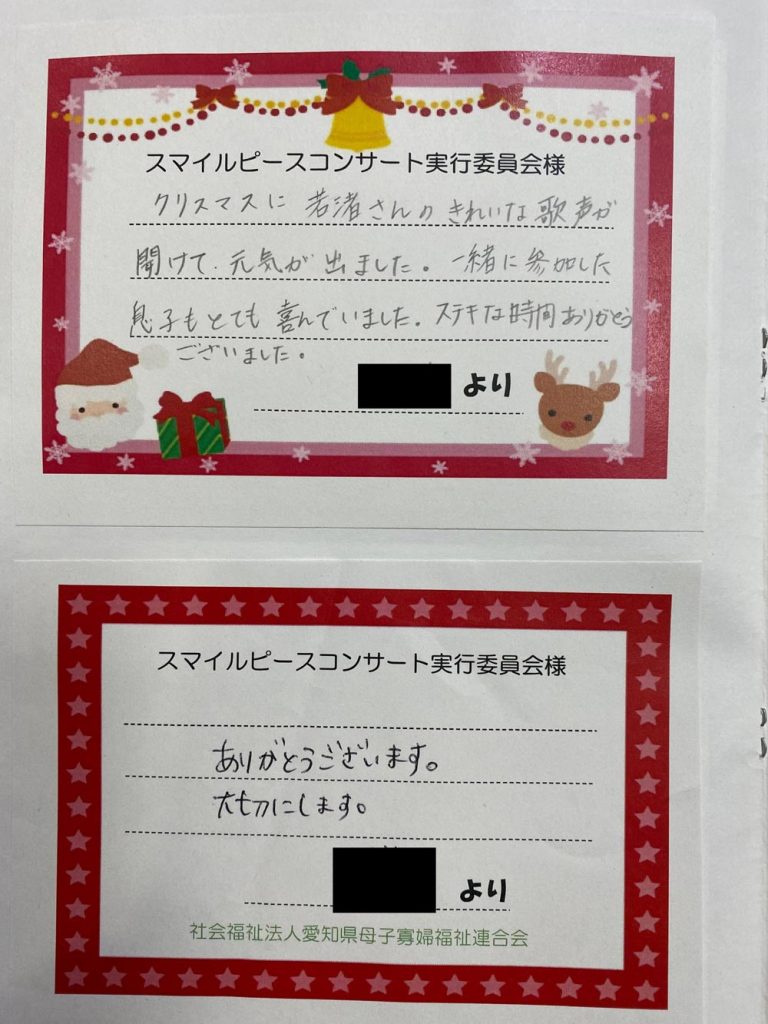 スマイルピースコンサート実行委員会様
クリスマスに 若渚さんの きれいな歌声が
聞けて、元気が出ました。一緒に参加した
息子もとても 喜んでいました。ステキな時間ありがとう
ございました。
より
スマイルピースコンサート実行委員会様
ありがとうございます。
大切にします。
より
社会福祉法人愛知県母子寡婦福祉連合会